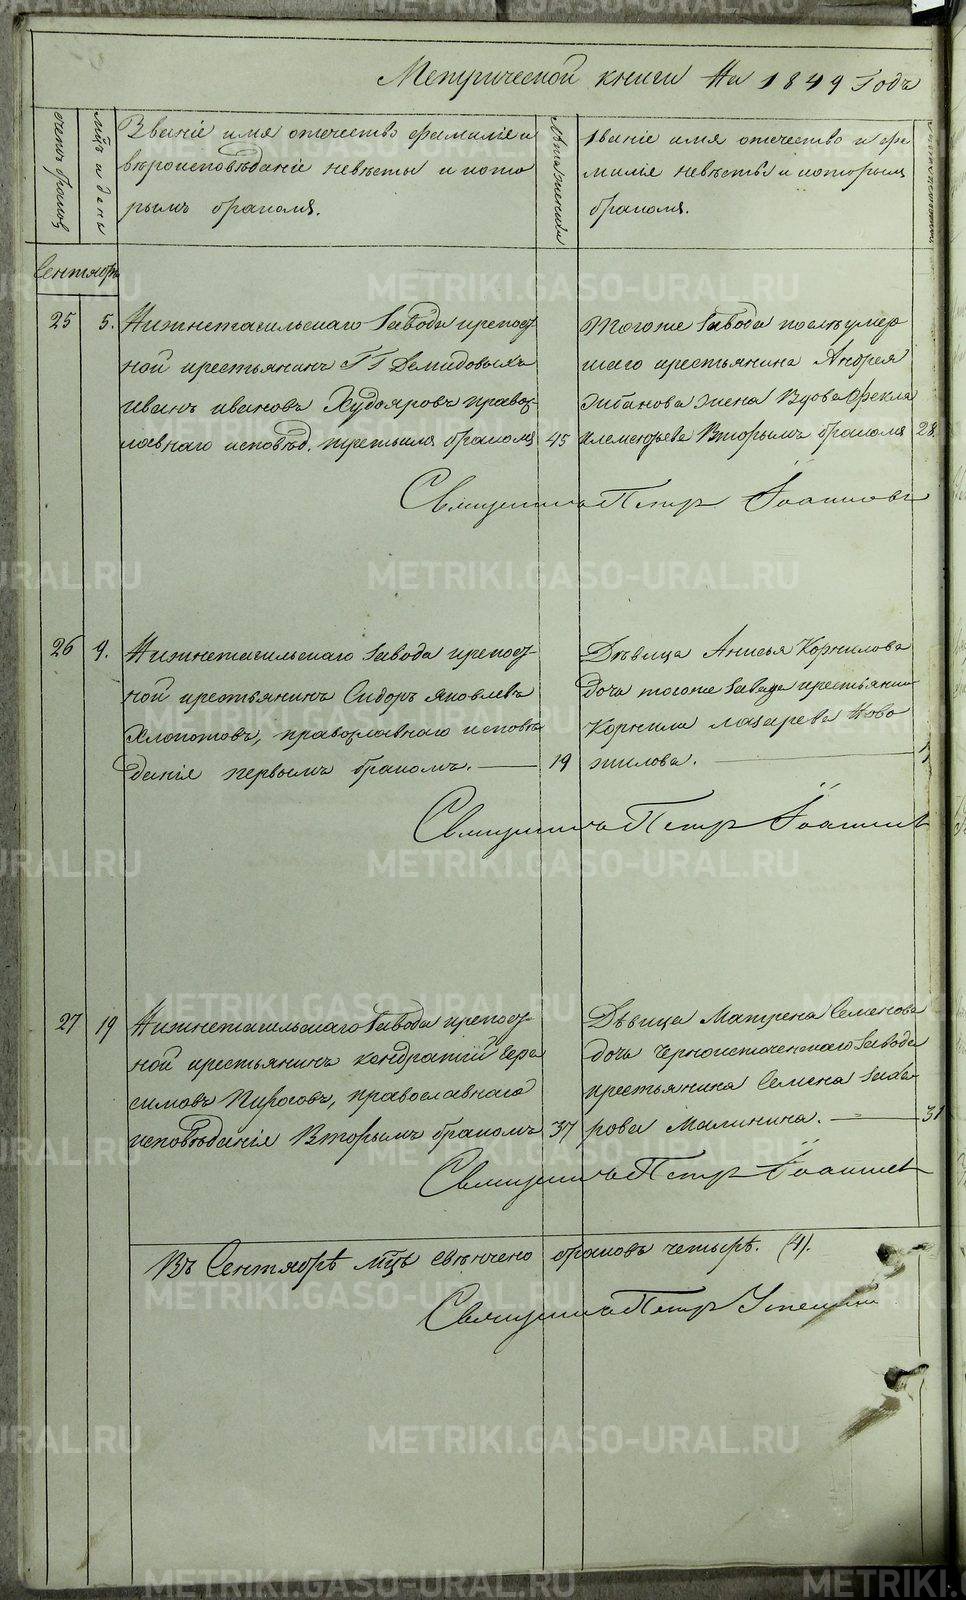 Метрической книги На 1849 Годъ
счетъ браковъ
мцъ и день
Званіе имя отечество фамилія и
вѣроисповѣданіе невѣсты и кото
рымъ бракомъ.
Лѣта жениха
Званіе имя отечество и фа
милія невѣсты и которым
бракомъ.
Сентябрь
25 5. Нижнетагильскаго Завода крепост
ной крестьянинъ Гг Демидовыхъ
Иванъ Ивановъ Худояровъ правос
лавнаго исповѣд. третьимъ бракомъ 45
Тогоже Завода послѣ умер
шаго крестьянина Андрея
жена Вдова Фекла
Клементьева Вторымъ бракомъ 28.
Священникъ Петръ Іоанновъ
26 9. Нижнетагильскаго Завода крепост
ной крестьянинъ Сидоръ Яковлевъ
Хлопотовъ, православнаго исповѣ
данія первымъ бракомъ. 19
Дѣвица Анисья Корнилова
дочь тогоже Завода крестьянин
Корнила Лазарева Ново
жилова.
Священникъ Петръ Іоаннов
27 19 Нижнетагильскаго Завода крепост
ной крестьянинъ Кондратій Гера
симовъ Пироговъ, православнаго
исповѣданія Вторымъ бракомъ 37
Дѣвица Матрена Семенова
дочь Черноисточенскаго Завода
крестьянина Семена Сидо
рова Малинина. 31
Священникъ Петръ Іоаннов
Въ Сентябрѣ мцѣ свѣнчено браковъ четырѣ. (4).
Священникъ Петръ
METRIKI.GASO-URAL.RU